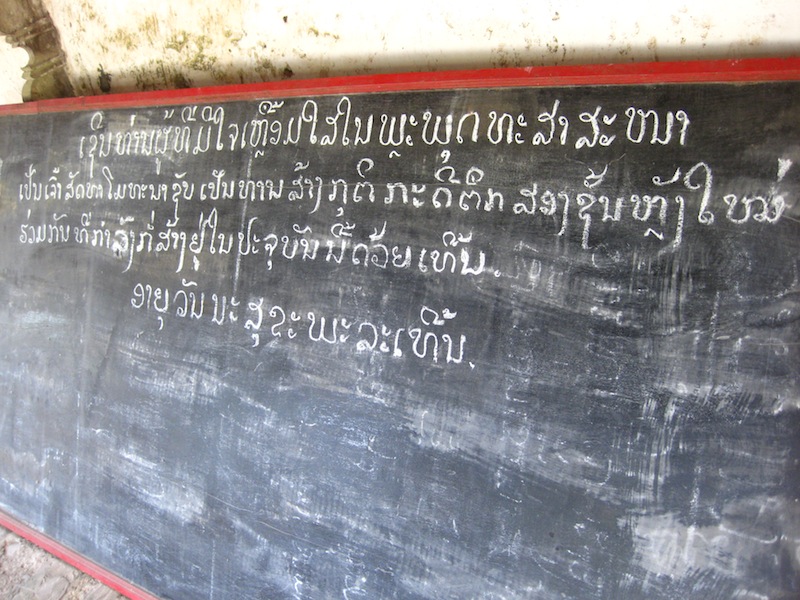 ເຊີນທ່ານຜູ້ທີ່ມີໃຈເຫຼື້ອມໃສໃນພຼະພຸດທະສາສະໜາ
ເປັນເຈົ້າສັດທາໂມທະນາຊັບ ເປັນທານສ້າງກຸຕິ ກະດີຕຶກ ສອງຊັ້ນຫຼັງໃຫວ່
ຮ່ວມກັບທີ່ກຳລັງກໍ່ສ້າງຢູ່ໃນປະຈຸບັນນີ້ດ້ວຍເທີ້ນ.
ອາຍຸ ວັນນະ ສຸຂະ ພະລະ ເທີ້ນ.